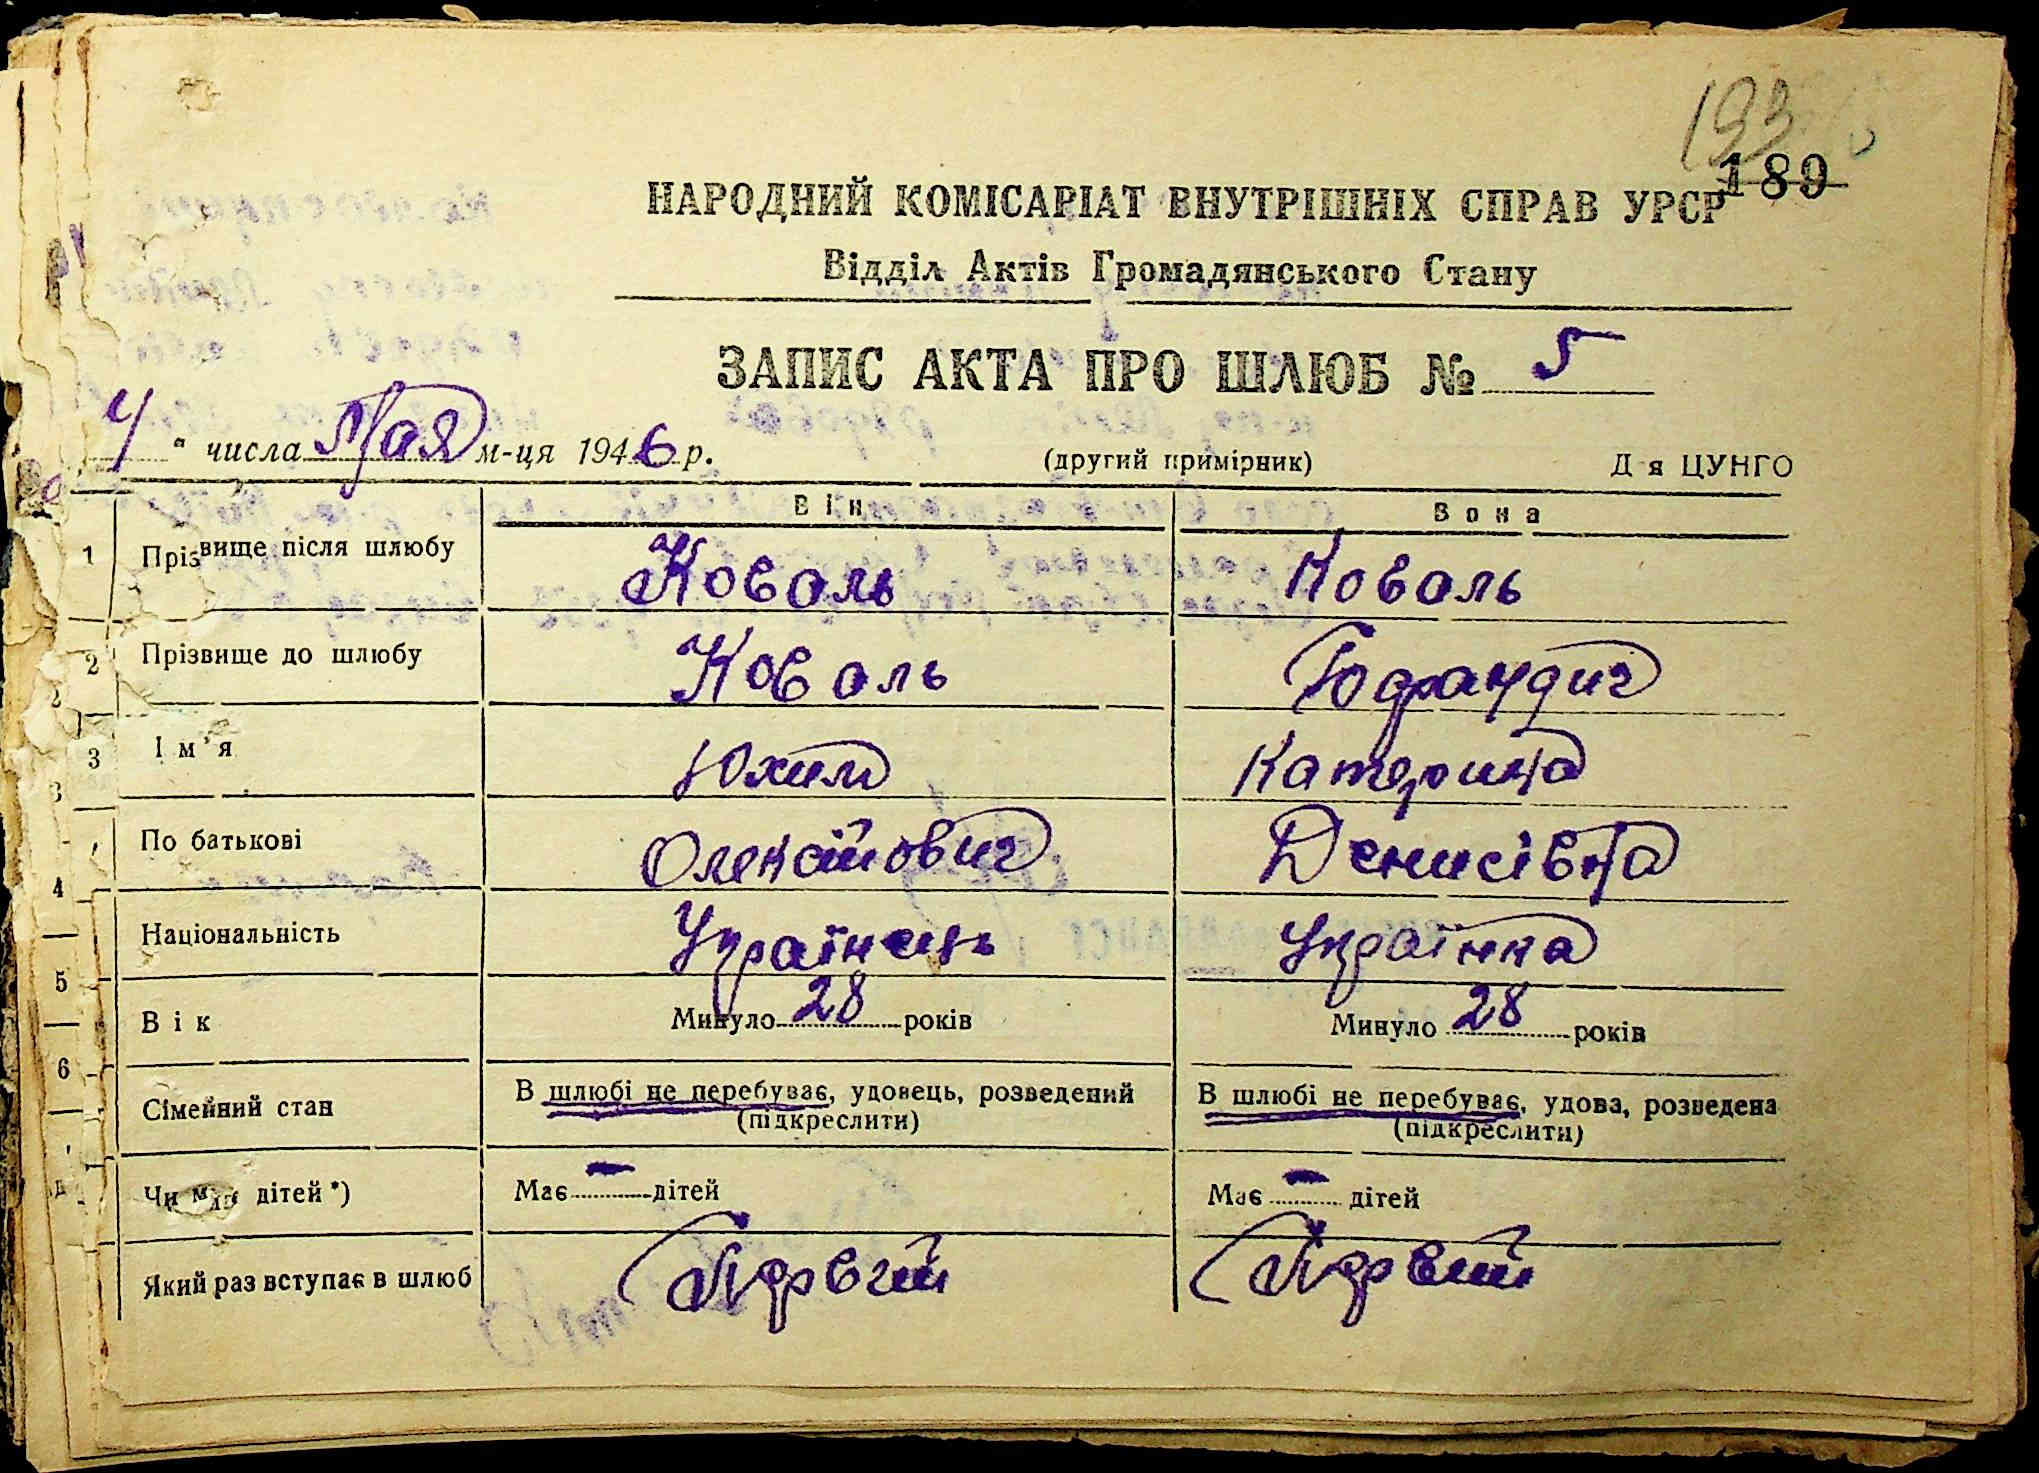 193
189
НАРОДНИЙ КОМІСАРІАТ ВНУТРІШНІХ СПРАВ УРСР
Відділ Актів Громадянського Стану
ЗАПИС АКТА ПРО ШЛЮБ № 5
4 " числа Мая м-ця 1946 р. (другий примірник) Д я ЦУНГО
Він Вона
1 Прізвище після шлюбу Коваль Коваль
2 Прізвище до шлюбу Коваль
3 Ім'я Юхим Катерина
По батькові Олексійович Денисівна
4
Національність Українець Українка
5
Вік Минуло 28 років Минуло 28 років
6
Сімейний стан В шлюбі не перебуває, удовець, розведений В шлюбі не перебуває, удова, розведена
(підкреслити) (підкреслити)
Чи має дітей *) Має - дітей Має - дітей
Який раз вступає в шлюб Первий Первий